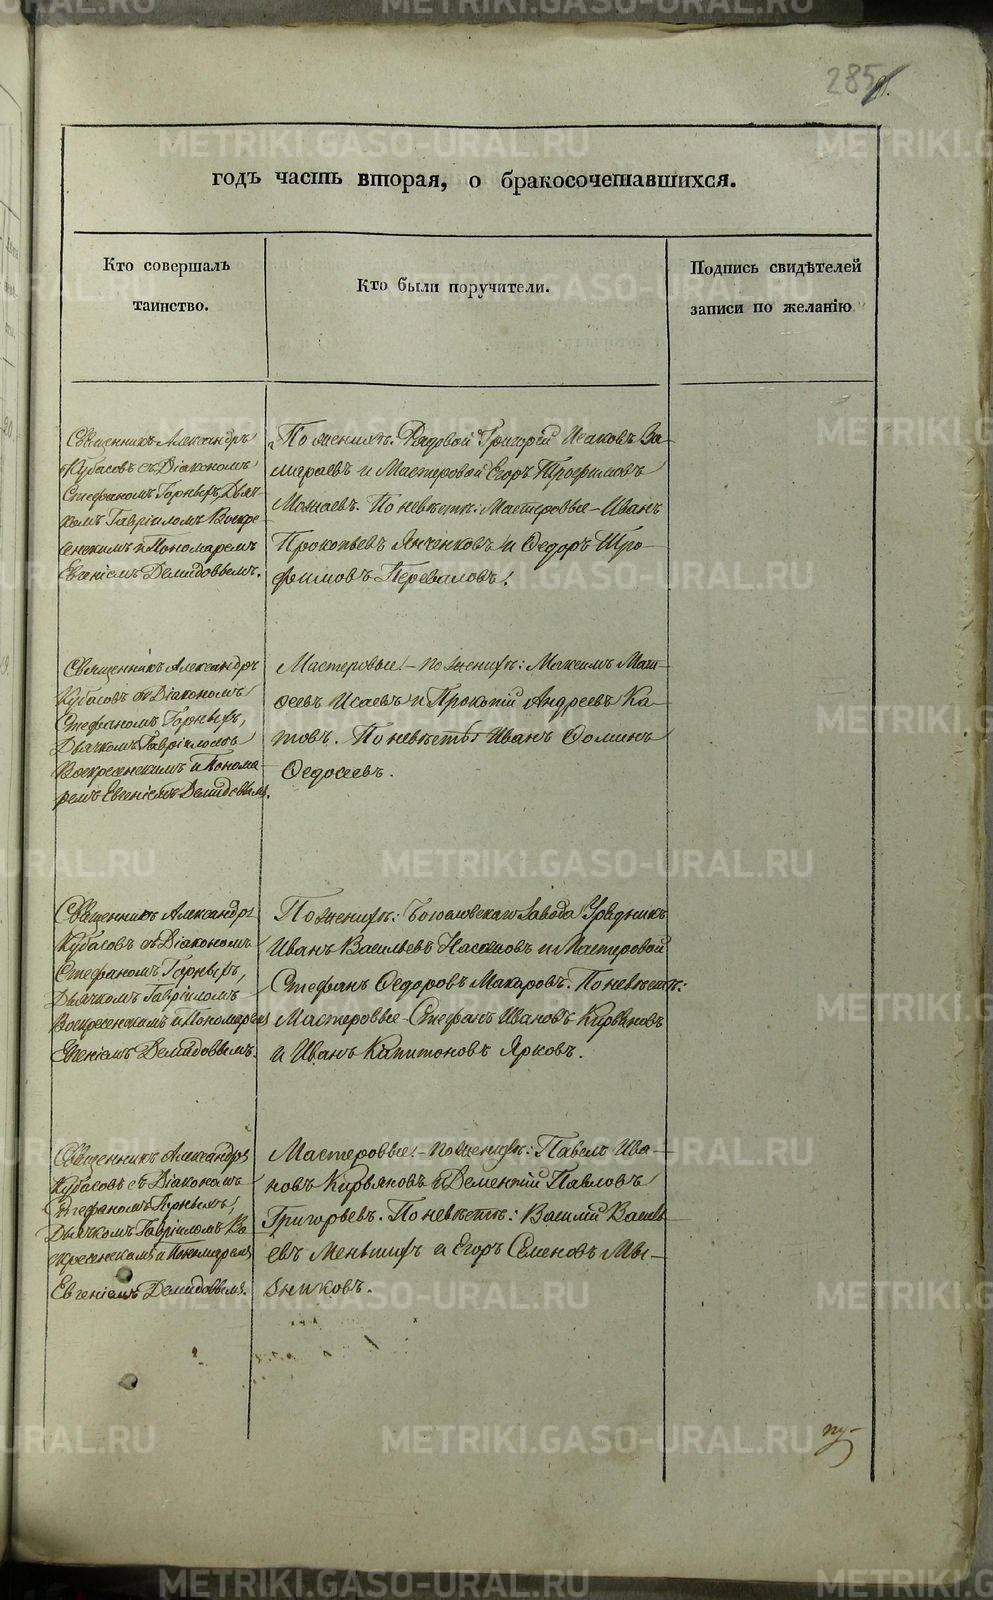 285
годъ часть вторая, о бракосочетавшихся.
Кто совершалъ
таинство.
Кто были поручители.
Подпись свидѣтелей
записи по желанію
Священникъ Александръ
Кубасовъ съ Діакономъ
Стефаномъ Горныхъ, Дьяч-
комъ Гавріиломъ Воскре-
сенскимъ и Пономаремъ
Евгеніемъ Демидовымъ.
По женихѣ: Рядовой Григорій Исаковъ
и Мастеровой Егоръ Трофимовъ
По невѣстѣ: Мастеровые - Иванъ
Прокопьевъ Янченковъ и Ѳедоръ Тро-
фимовъ Переваловъ.
Священникъ Александръ
Кубасовъ съ Діакономъ
Стефаномъ Горныхъ,
Дьячкомъ Гавріиломъ
Воскресенскимъ и Понома-
ремъ Евгеніемъ Демидовымъ.
Мастеровые - по женихѣ: Максимъ Мат-
ѳеевъ Исаевъ и Прокопій Андреевъ Ка-
товъ. По невѣстѣ Иванъ Ѳоминъ
Ѳедосеевъ.
Священникъ Александръ
Кубасовъ съ Діакономъ
Стефаномъ Горныхъ,
Дьячкомъ Гавріиломъ
Воскресенскимъ и Пономаремъ
Евгеніемъ Демидовымъ.
По женихѣ: Богословскаго Завода Урядникъ
Иванъ Васильевъ и Мастеровой
Стефанъ Ѳедоровъ Макаровъ. По невѣстѣ:
Мастеровые - Стефанъ Ивановъ Кирьяновъ
и Иванъ Капитоновъ Ярковъ.
Священникъ Александръ
Кубасовъ съ Діакономъ
Стефаномъ Горныхъ,
Дьячкомъ Гавріиломъ Во-
скресенскимъ и Пономаремъ
Евгеніемъ Демидовымъ.
Мастеровые - по женихѣ: Павелъ Ива-
новъ Кирьяновъ и Дементій Павловъ
Григорьевъ. По невѣстѣ: Василій Василь-
евъ Меньшихъ и Егоръ Семеновъ Мы-
зниковъ.
METRIKI.GASO-URAL.RU